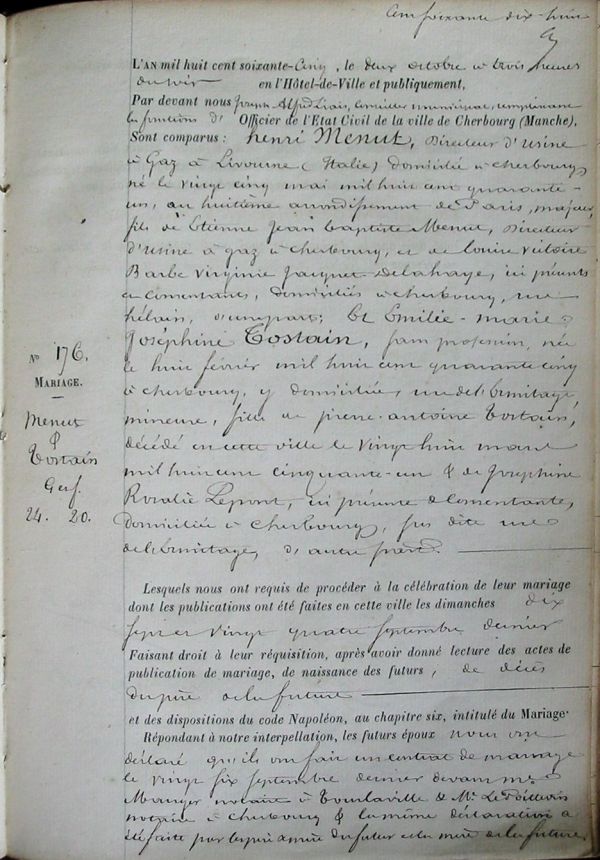 Cent soixante dix-huit
L'AN mil huit cent soixante-Cinq, le deux octobre à trois heures
du soir en l'Hôtel-de-Ville et publiquement,
Par devant nous Joseph Alfred Liais, Conseiller municipal, remplissant
les fonctions d' Officier de l'Etat Civil de la ville de Cherbourg (Manche),
Sont comparus : henri Menut, Directeur d'usine
à Gaz à Livourne (Italie) domicilié à cherbourg,
né le vingt cinq mai mil huit cent quarante-
un, au huitième arrondissement de Paris, majeur,
fils de Etienne Jean baptiste Menut, Directeur
d'usine à gaz à cherbourg, et de louise victoire
Barbe virginie Jacquet Delahaye, ici présents
et consentants, domiciliés à cherbourg, rue
hélain, d'une part; Et Emilie-marie-
Joséphine Tostain, sans profession, née
le huit février mil huit cent quarante cinq
à cherbourg, y domiciliée, rue de l'ermitage,
mineure, fille de pierre-antoine Tostain,
décédé en cette ville le vingt huit mars
mil huit cent cinquante-un & de Joséphine
Rosalie Lepont, ici présente & consentante,
domiciliée à Cherbourg, sus dite rue
de l'ermitage, d'autre part.
N° 176.
MARIAGE.
Menut
&
Tostain
24. 20.
Lesquels nous ont requis de procéder à la célébration de leur mariage
dont les publications ont été faites en cette ville les dimanches dix
sept et vingt quatre septembre dernier
Faisant droit à leur réquisition, après avoir donné lecture des actes de
publication de mariage, de naissance des futurs, de décès
du père de la future
et des dispositions du code Napoléon, au chapitre six, intitulé du Mariage.
Répondant à notre interpellation, les futurs époux nous ont
déclaré qu'ils ont fait un contrat de mariage
le vingt six septembre dernier devant me
notaire à Tourlaville & Me Le Poittevin
notaire à cherbourg & la même déclaration a
été faite par les père & mère du futur et la mère de la future